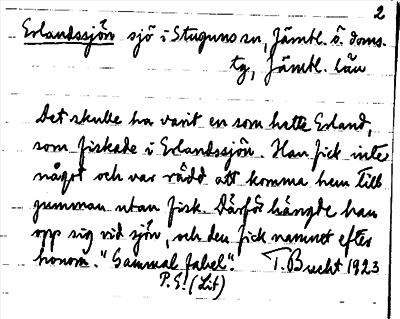 2
Erlandssjön sjö i Stuguns sn, Jämtl. ö. doms.
tg, Jämtl. län
Det skulle ha varit en som hette Erland,
som fiskade i Erlandssjön. Han fick inte
något och var rädd att komma hem till
gumman utan fisk. Därför hängde han
opp sig vid sjön, och den fick namnet efter
honom. "Gammal fabel". T. Bucht 1923
P.G! (Lit)